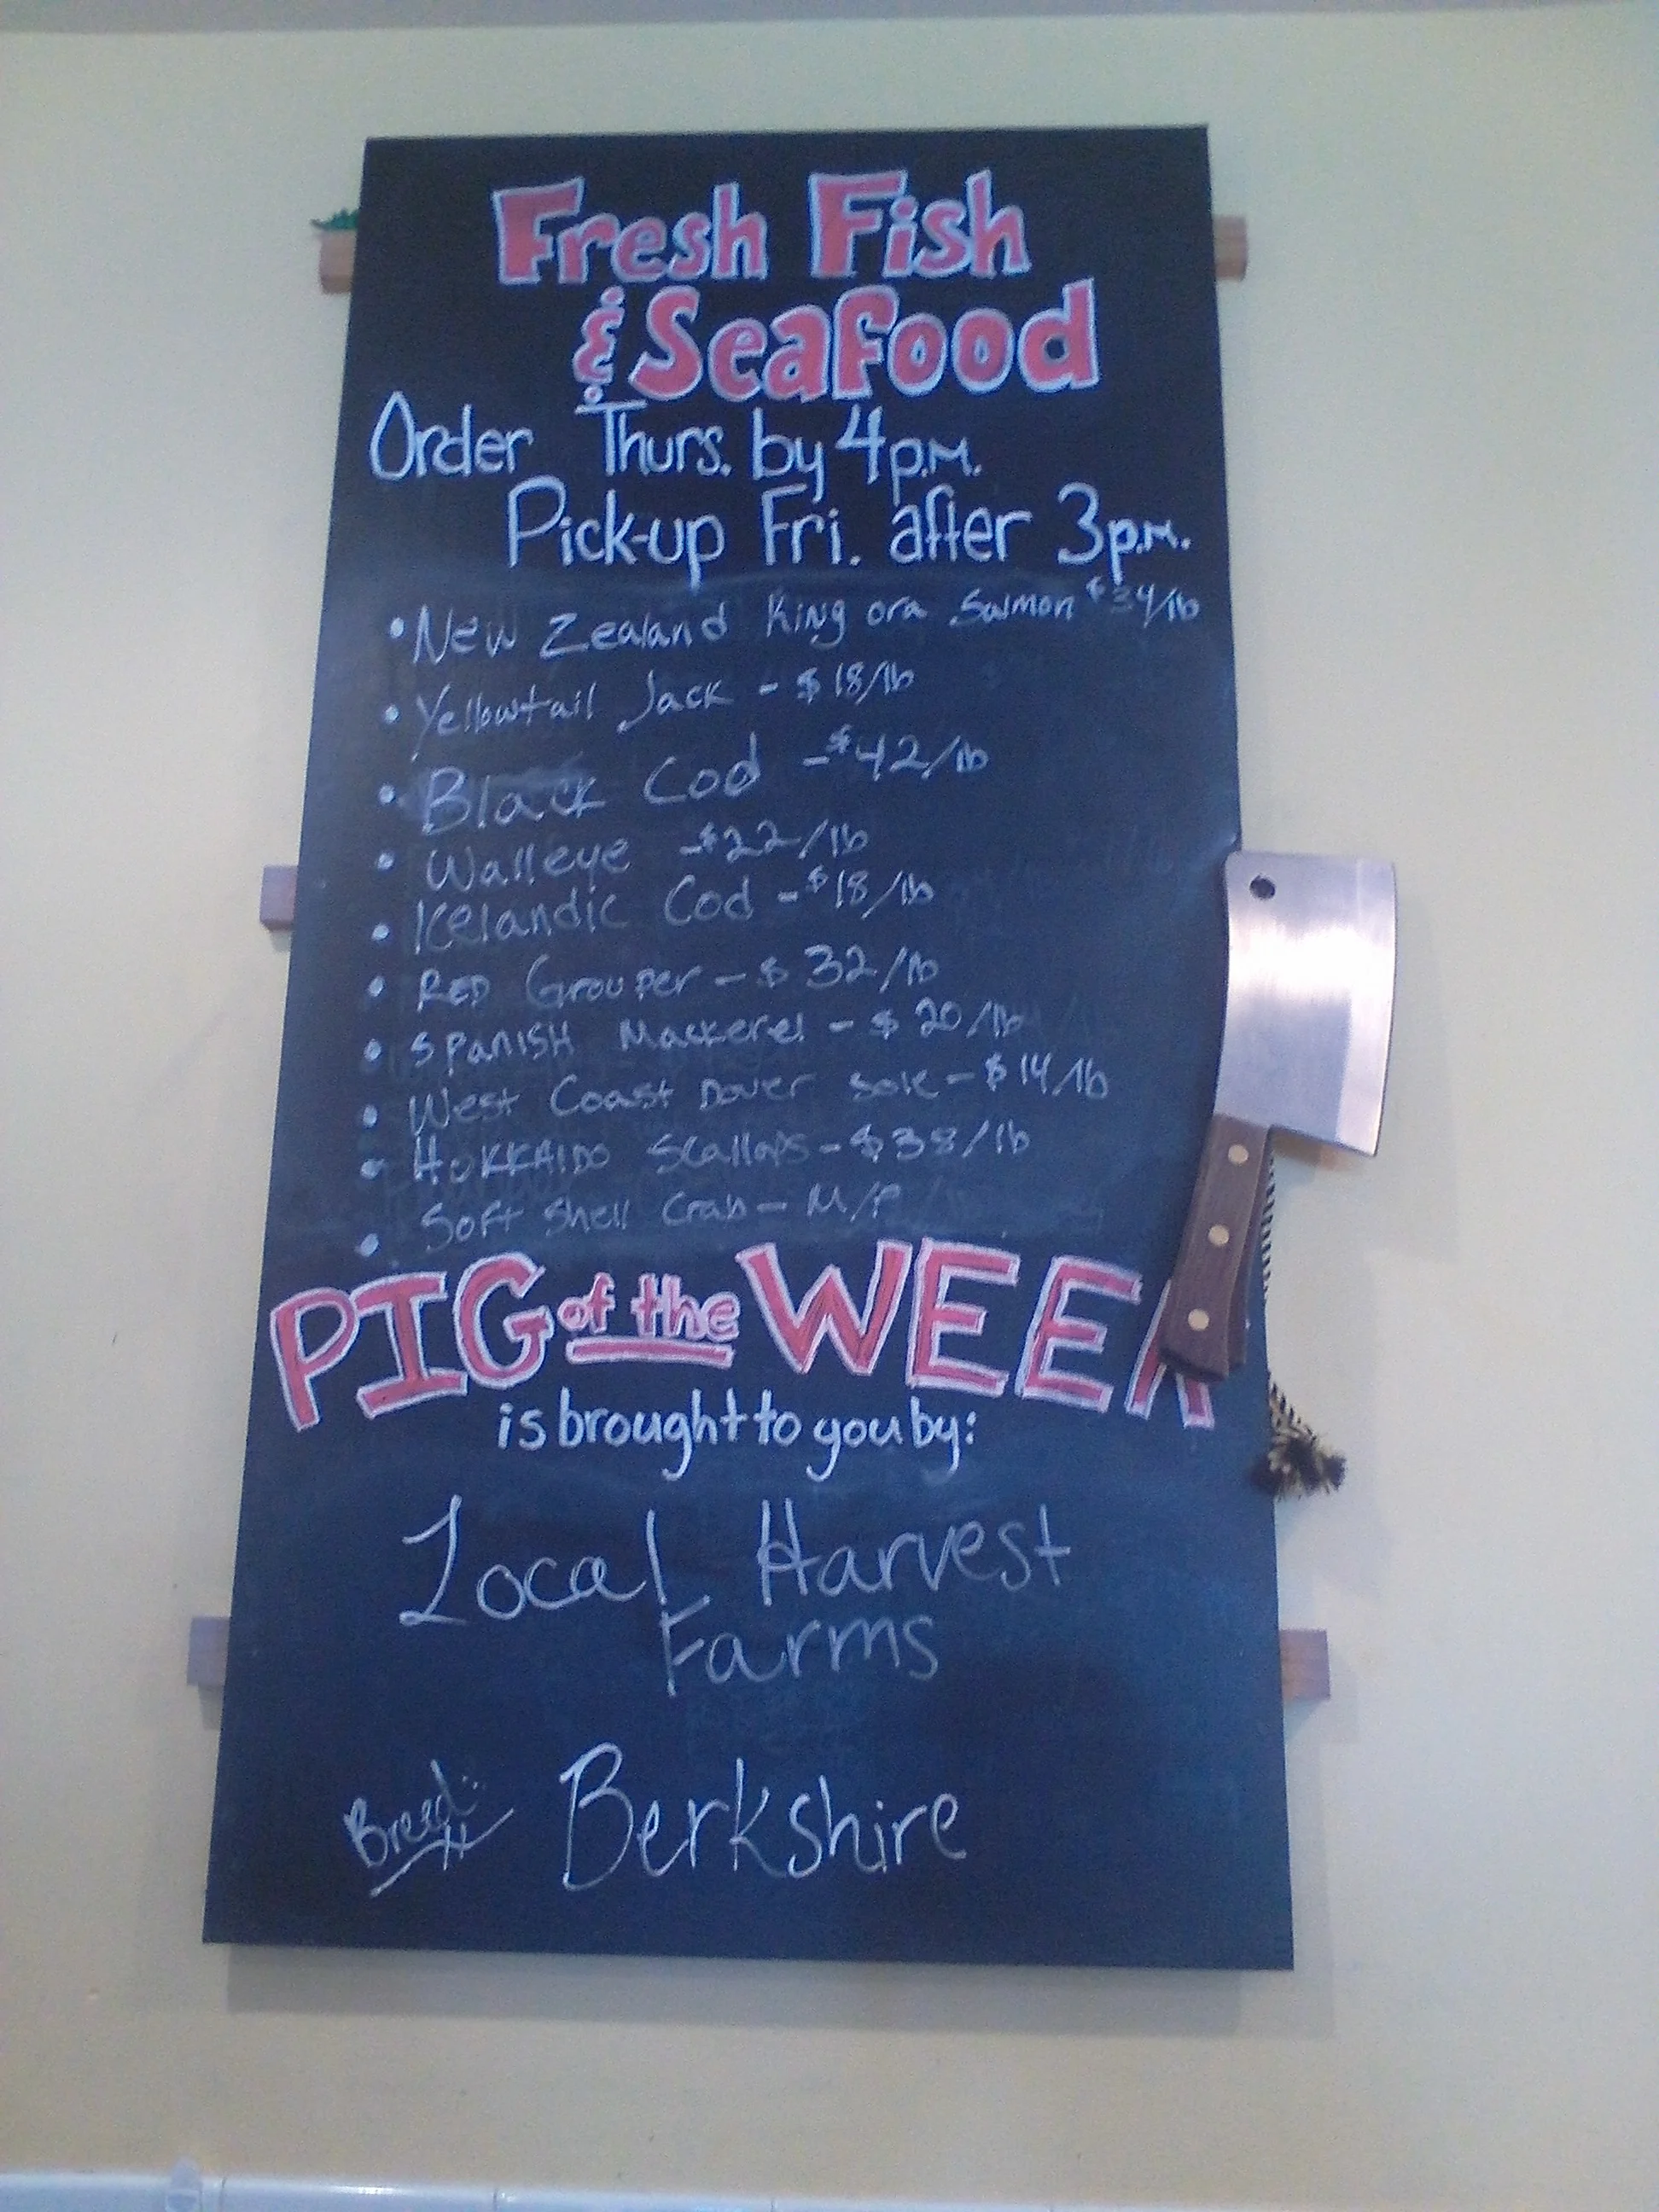 Fresh Fish
& Seafood
Order Thurs. by 4p.m.
Pick-up Fri. after 3p.m.
• New Zealand King ora Salmon $34/lb
• Yellowtail Jack - $18/lb
• Black Cod - $42/lb
• Walleye - $22/lb
• Icelandic Cod - $18/lb
• RED Grouper - $32/lb
• SPANISH Mackerel - $20/lb
• West Coast Dover Sole - $14/lb
• HOKKAIDO Scallops - $38/lb
• Soft Shell Crab - M/P
PIG of the WEEK
is brought to you by:
Local Harvest
Farms
Breed: Berkshire